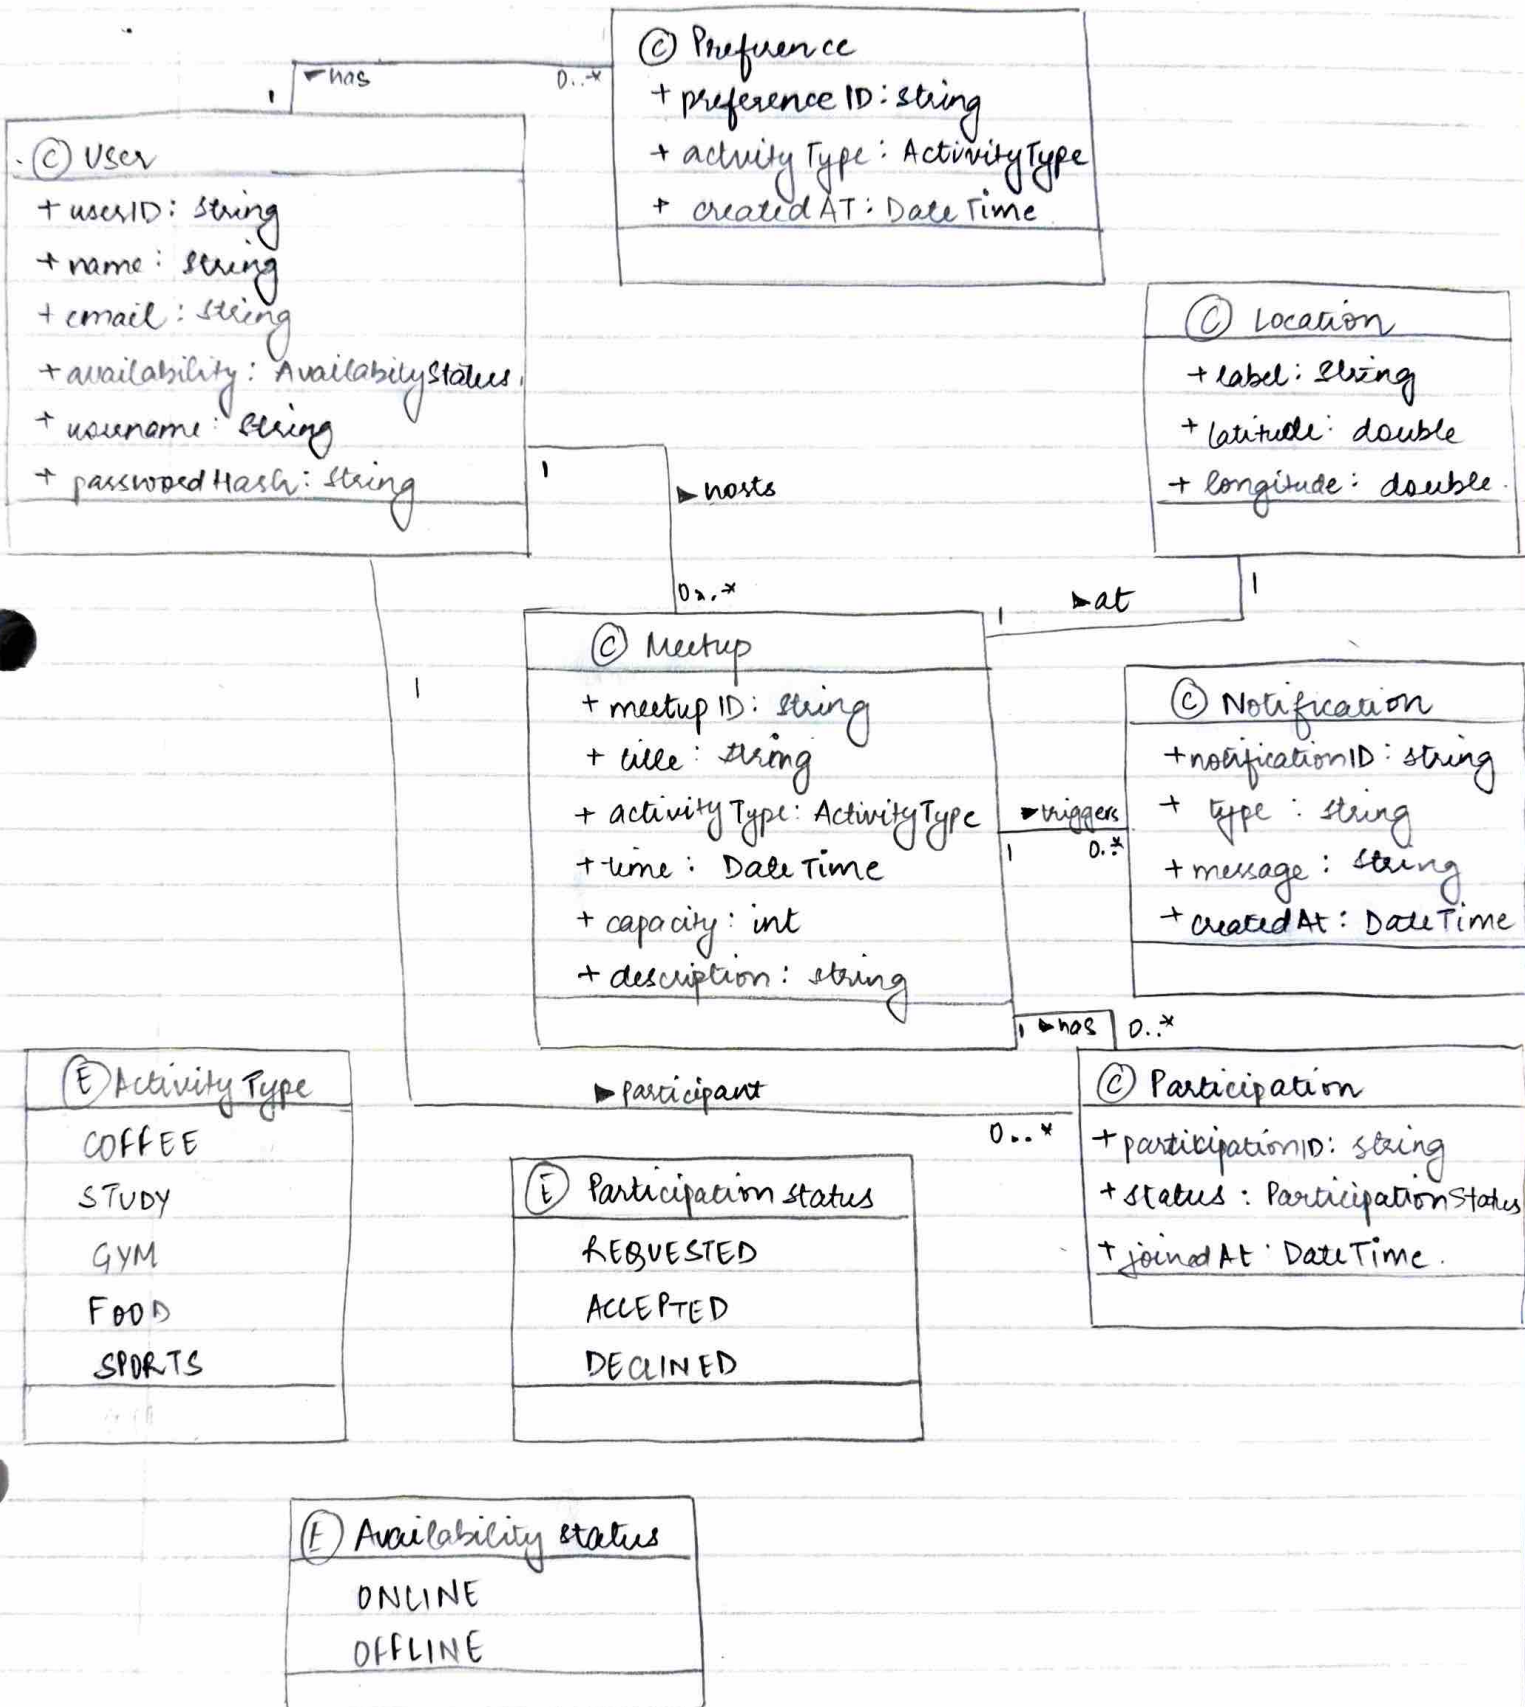 © Preference
+ preferenceID: string
+ activityType: ActivityType
+ createdAT: DateTime
1
▶has
0..*
© User
+ userID: String
+ name: String
+ email: String
+ availability: AvailabilyStatus
+ username: String
+ passwordHash: String
© Location
+ label: String
+ latitude: double
+ longitude: double
1
▶hosts
0..*
1
▶at
1
© Meetup
+ meetupID: String
+ title: String
+ activityType: ActivityType
+ time: DateTime
+ capacity: int
+ description: string
© Notification
+ notificationID: string
+ type: string
+ message: string
+ createdAt: DateTime
▶triggers
1
0..*
1
▶has
0..*
1
▶participant
0..*
© Participation
+ participationID: string
+ status: ParticipationStatus
+ joinedAt: DateTime.
Ⓔ ActivityType
COFFEE
STUDY
GYM
FOOD
SPORTS
Ⓔ Participation status
REQUESTED
ACCEPTED
DECLINED
Ⓔ Availability status
ONLINE
OFFLINE